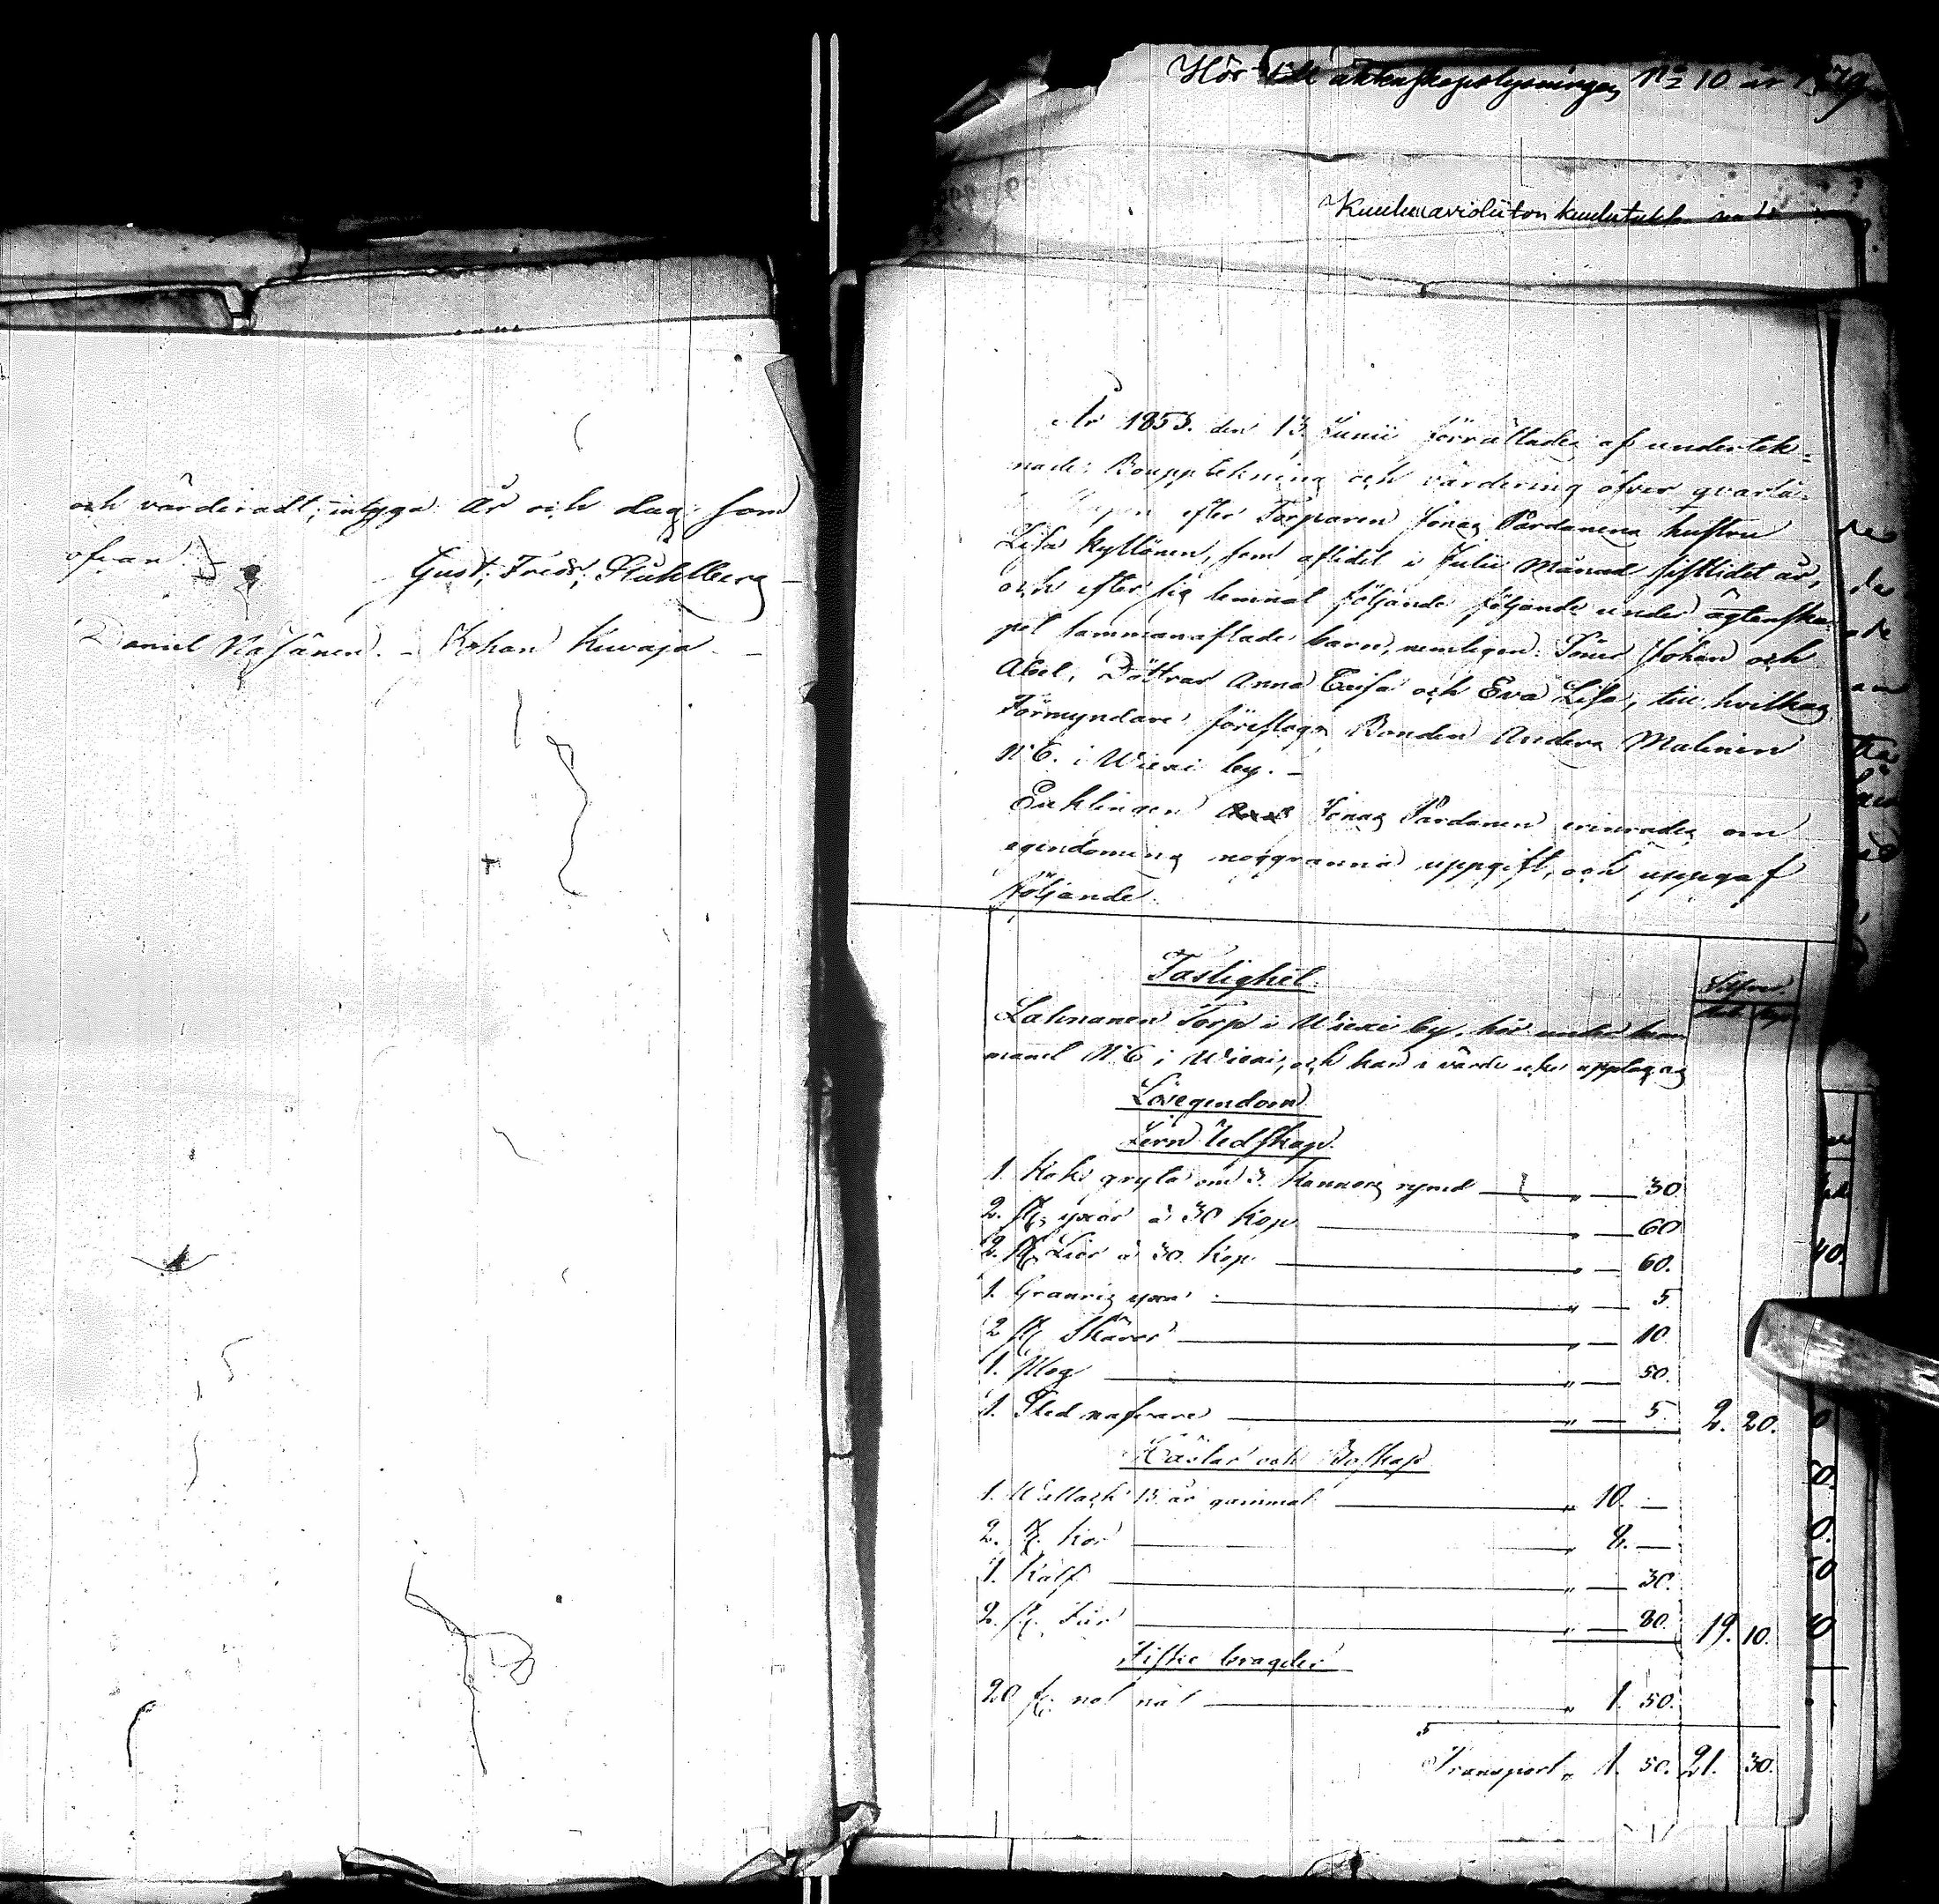 och värderadt; intyga År och dag som
ofvan.
Gust. Fredr. Stuhlberg
Daniel Käsänen. - Johan Kuvaja -
Hör till äktenskapslysningen No 10 år 1879
Kuuluu avioliiton kuulutukseen
År 1853. den 13. Junii förrättades af underteck-
nade: Bouppteckning och värdering öfver qvarlå-
efter Torparen Jonas Pardanens hustru
Lisa Kyllönen, som aflidit i Julii Månad sistlidet år,
och efter sig lemnat följande följande under ägtenska-
pet sammanaflade barn, nemligen: Söner Johan och
Abel, Döttrar Anna Caisa och Eva Lisa, till hvilkas
Förmyndare föreslogs Bonden Anders Malinen
No 6. i Wiexi by. -
Encklingen Jonas Pardanen erinrades om
egendomens noggranna uppgift, och uppgaf
följande.
Fastighet.
Silfver.
Rub. Kop.
Lahnanen Torp i Wiexi by, hör under hem-
manet No 6 i Wiexi, och kan i värde icke upptagas
Lösegendom
Jern Redskap.
1. Kok gryta om 3. Kannors rymd " — 30
2. st. yxor à 30 Kop. " — 60
2. st. Liar à 30. Kop. " — 60.
1. Granris yxa " — 5.
2 st. Skäror " — 10.
1. Plog " — 50.
1. Sked nafvare " — 5. 2. 20.
Hästar och Boskap
1. Wallack 13 år gammal " 10. —
2. st. Kor " 8. —
1. Kalf " — 30.
2. st. Får " — 80. 19. 10.
Fiske bragder
20 st. not nät " 1. 50.
Transport " 1. 50. 21. 30.